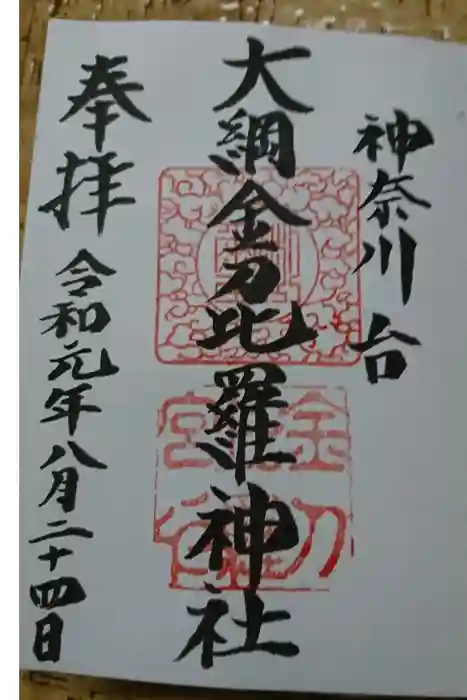 神奈川台
大綱金刀比羅神社
奉拝
令和元年八月二十四日